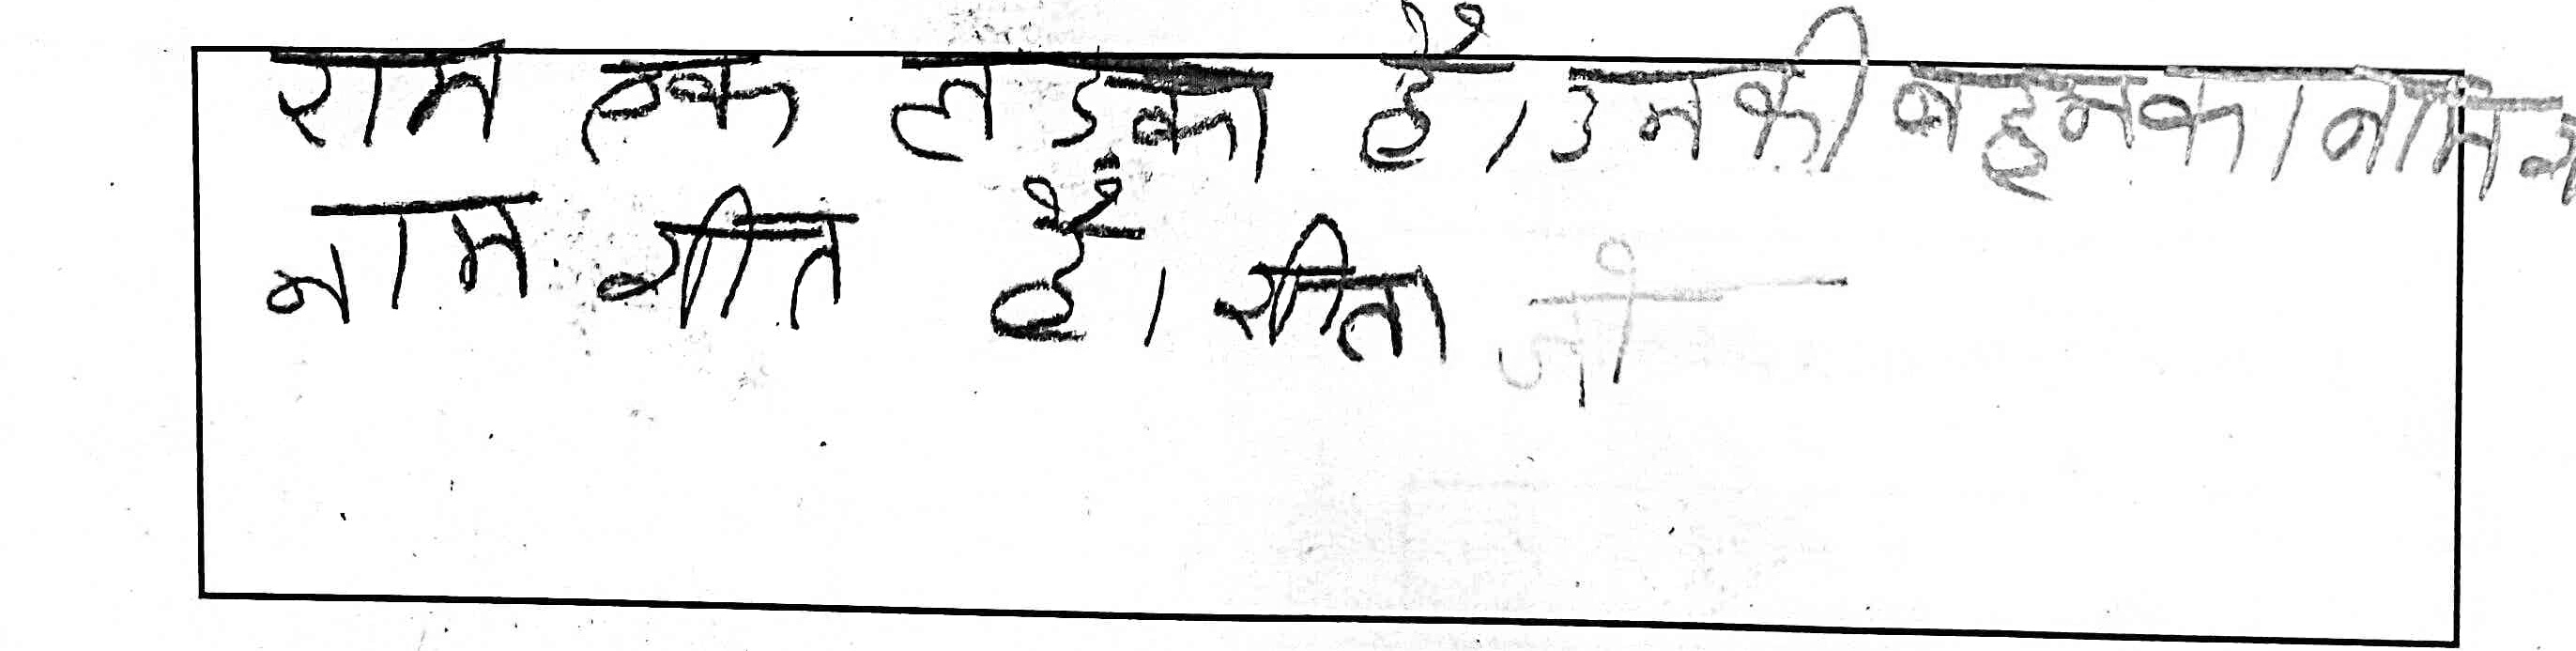 राम एक लडका हैं। उनकी बहनका नाम
नाम गीत हैं। सीता जो